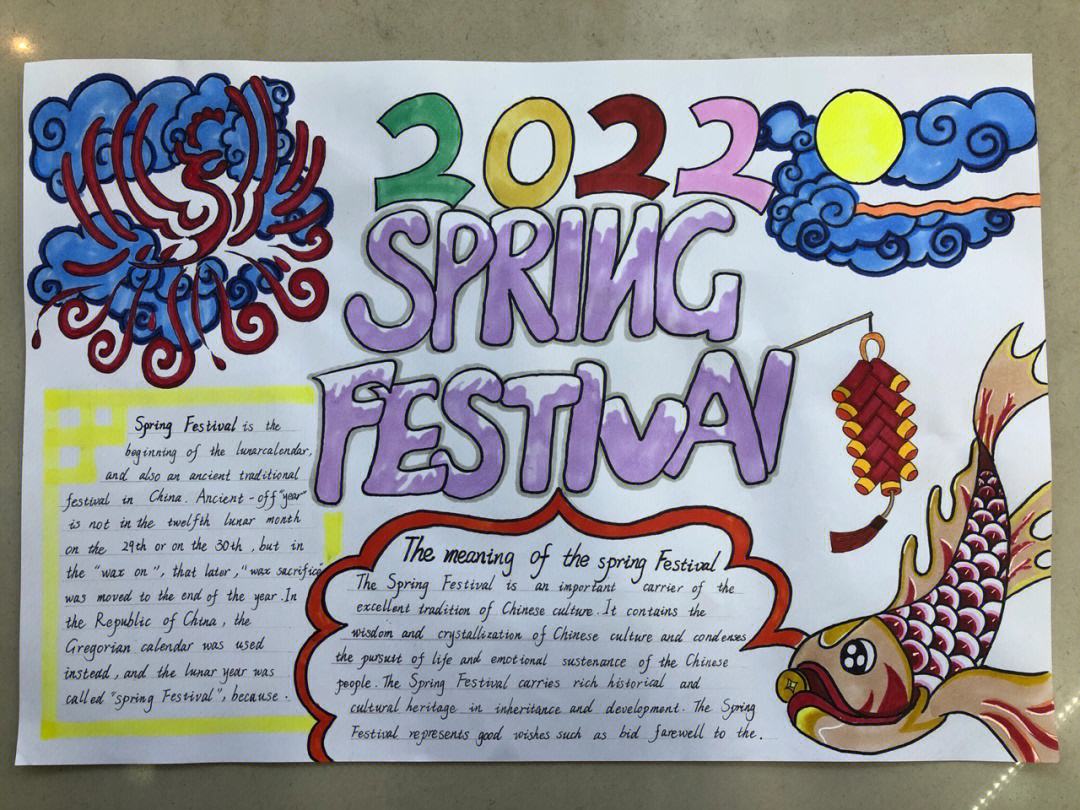 2022
SPRING
FESTIVAL
Spring Festival is the
beginning of the lunarcalendar,
and also an ancient traditional
festival in China. Ancient-off "year"
is not in the twelfth lunar month
on the 29th or on the 30th, but in
the "wax on", that later, "wax sacrifice
was moved to the end of the year. In
the Republic of China, the
Gregorian calendar was used
instead, and the lunar year was
called "spring Festival", because.
The meaning of the spring Festival
The Spring Festival is an important carrier of the
excellent tradition of Chinese culture. It contains the
wisdom and crystallization of Chinese culture and condenses
the pursuit of life and emotional sustenance of the Chinese
people. The Spring Festival carries rich historical and
cultural heritage in inheritance and development. The Spring
Festival represents good wishes such as bid farewell to the.